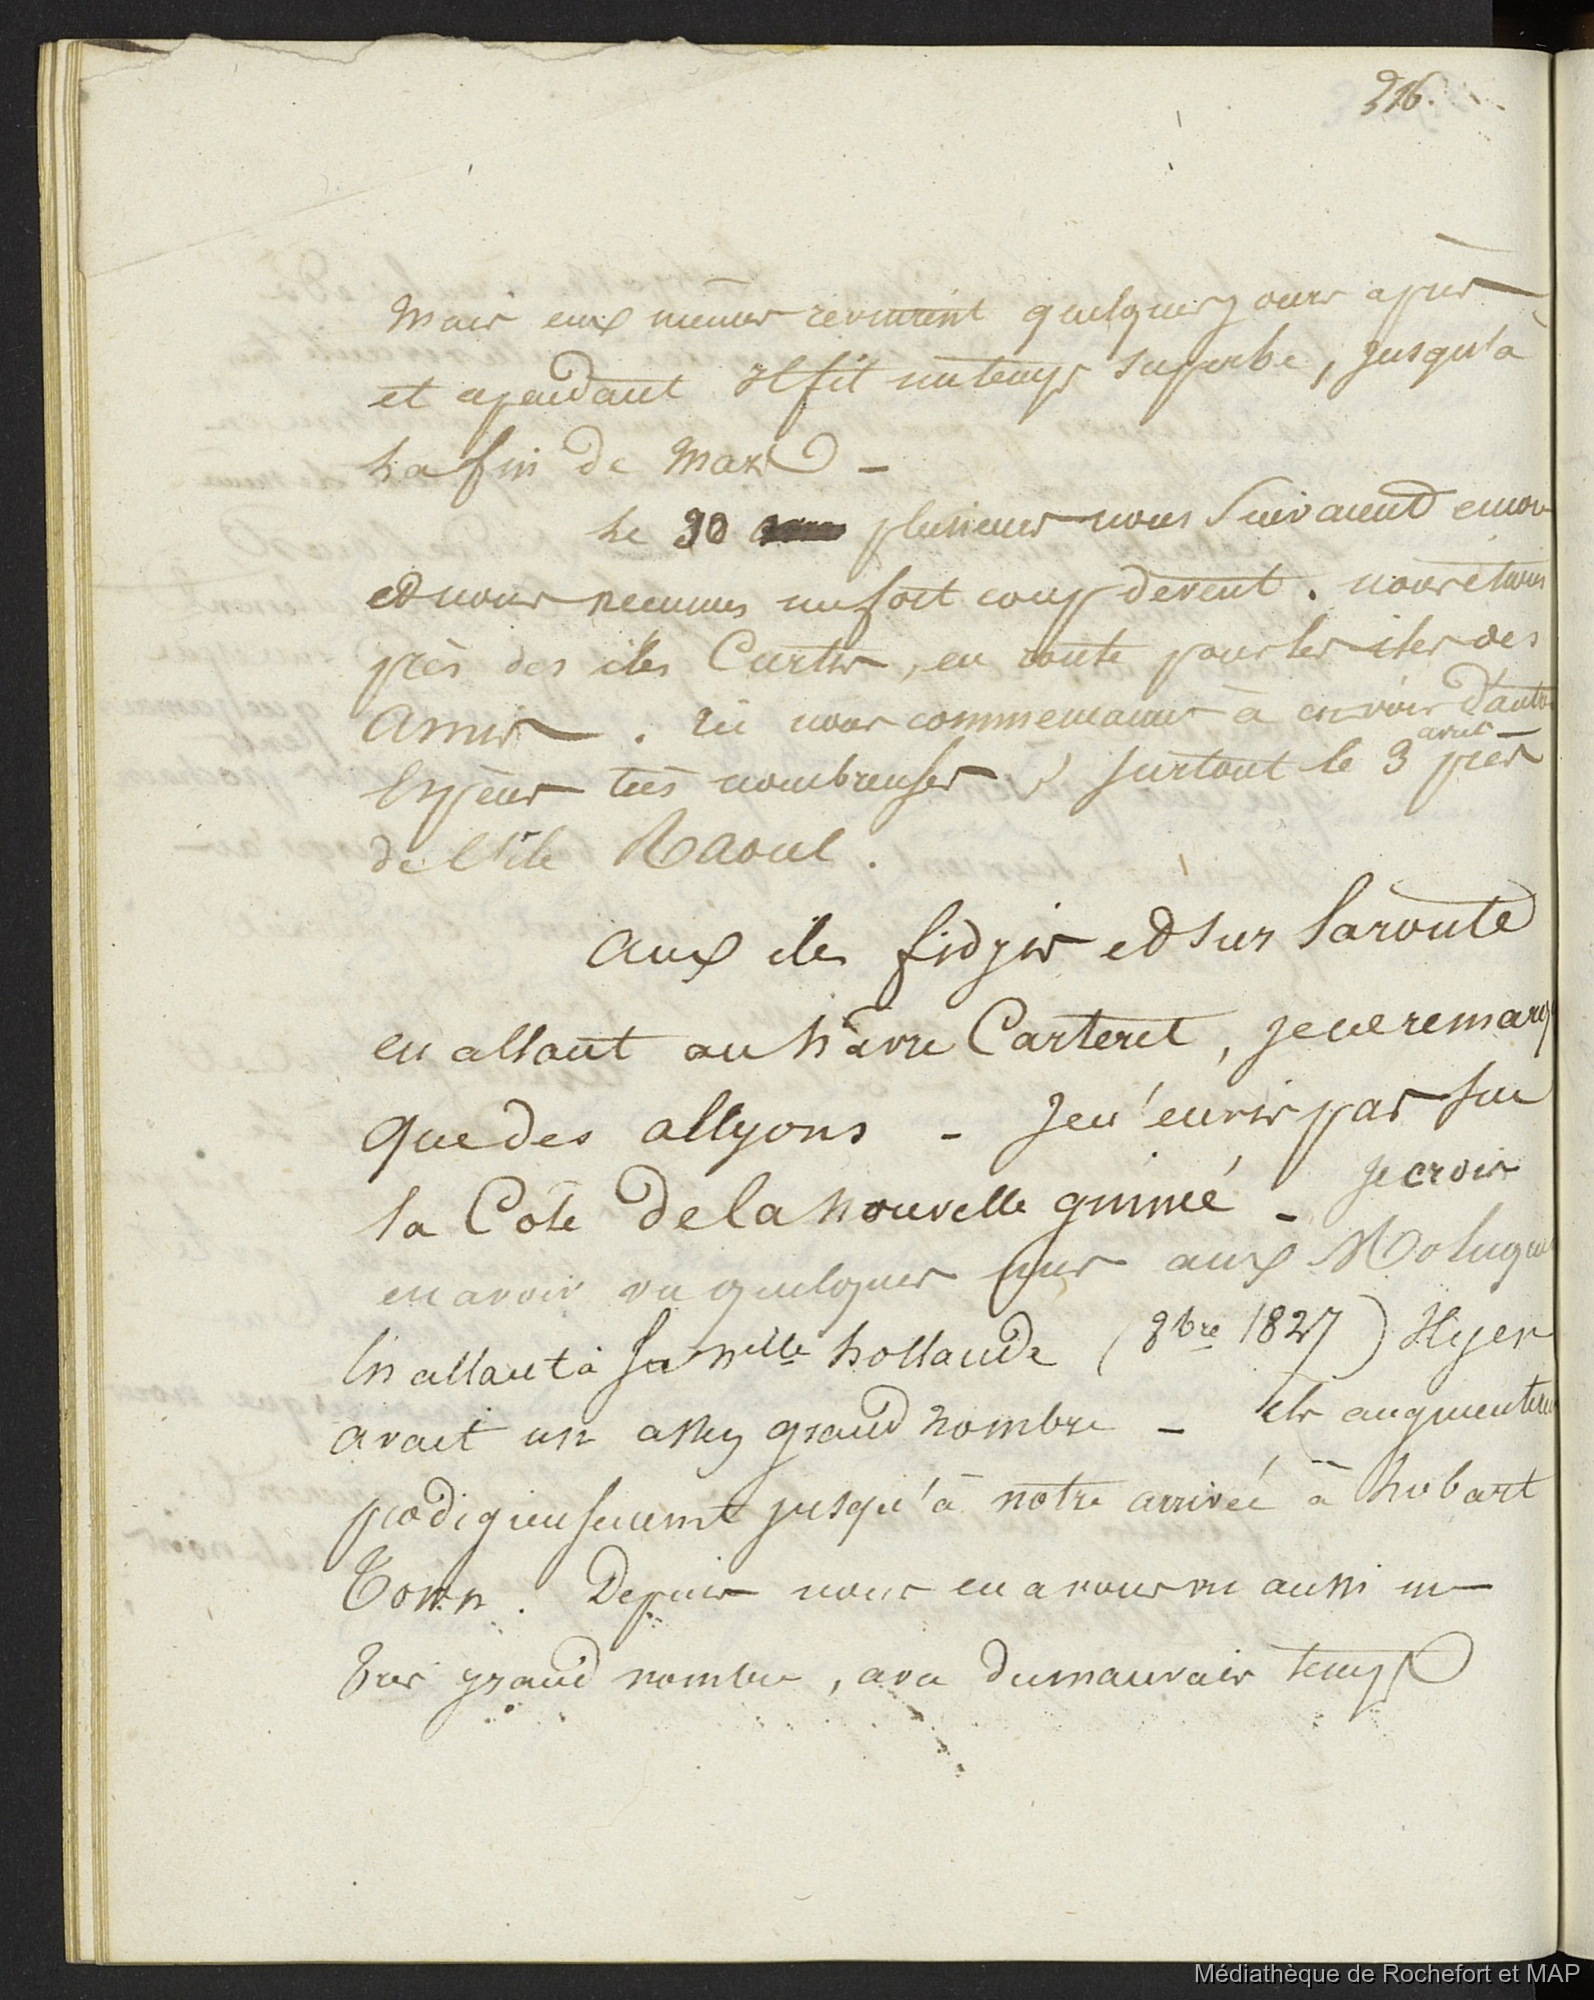 316.
Mais eux mêmes revinrent quelques jours apres
et cependant Il fit un temps superbe, jusqu'à
La fin de Mars –
Le 30 plusieurs nous suivaient encor
et nous recumes un fort coup de vent. nous étions
près des iles Curtis, en route pour les iles des
Amis. Ici nous commencames à en voir d'autres
avril
Espèces très nombreuses, surtout le 3 près
de L'ile Raoul.
Aux iles fidgis et sur la route
en allant au hâvre Carteret, je ne remar
que des alcyons – Je n'en vis pas sur
la Côte de la nouvelle guinné – Je crois
en avoir vu quelques uns aux Moluques
En allant à la nlle hollande (8bre 1827) Il y en
avait un assez grand nombre – Ils augmentere
prodigieusement jusqu'à notre arrivée à hobart
Town. Depuis nous en avons vu aussi un
tres grand nombre, avec du mauvais temps
Médiathèque de Rochefort et MAP